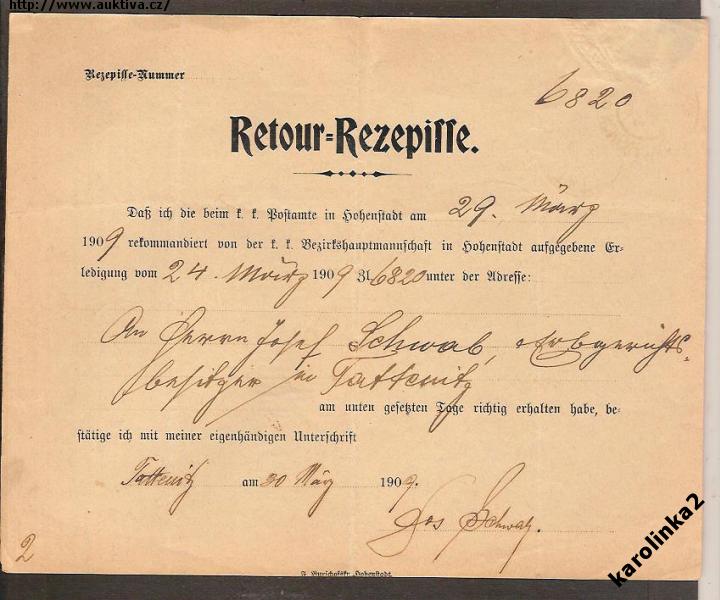 http://www.auktiva.cz/
Rezepisse-Nummer 6820
Retour-Rezepisse.
Daß ich die beim k. k. Postamte in Hohenstadt am 29. März
1909 rekommandiert von der k. k. Bezirkshauptmannschaft in Hohenstadt aufgegebene Er-
ledigung vom 24. März 1909 Zl 6820 unter der Adresse:
An Herrn Josef Schwab, Erbgerichts-
besitzer in Tattenitz
am unten gesetzten Tage richtig erhalten habe, be-
stätige ich mit meiner eigenhändigen Unterschrift
Tattenitz am 30 März 1909.
Jos Schwab.
2
Hohenstadt.
karolinka2